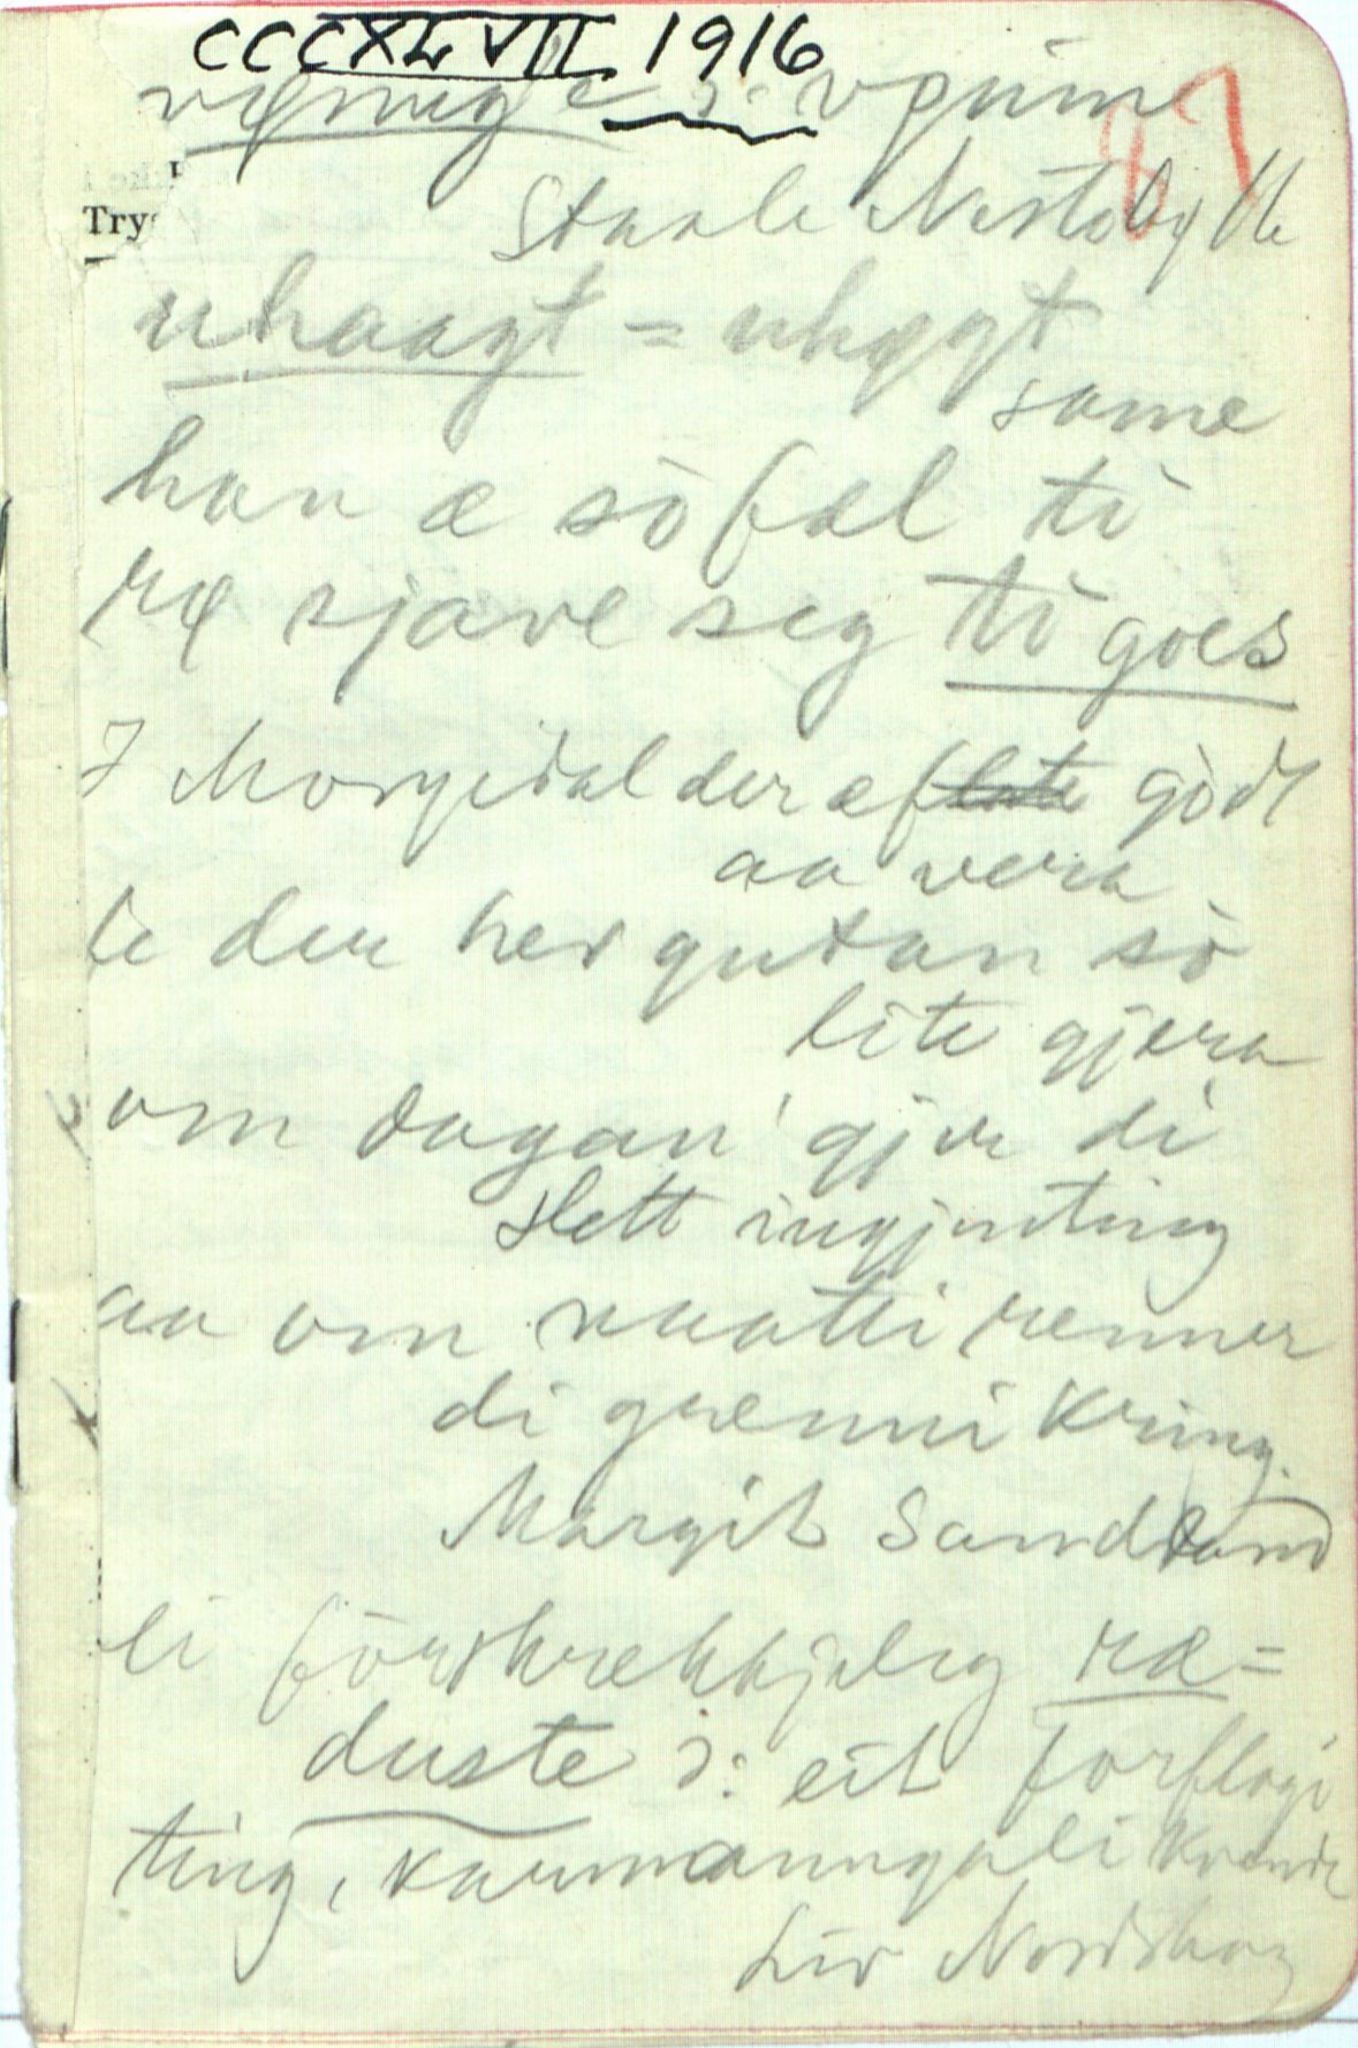 CCCXLVII. 1916
87
Staale Nestebyll
Try
uhaagt = uhøgt
some
han æ sò fæl ti
rø sjave seg ti goes
I Morgedal der æ godt
aa vera
te der her gutan sò
lite gjera
om dagan gjer di
slett ingjenting
aa om naatti renner
di grenni kring.
Margit Sandland
ei förskrekkjeleg ræ=
duste ɔ: eit forflogi
ting, karmanngali kvende
Liv Nordskog